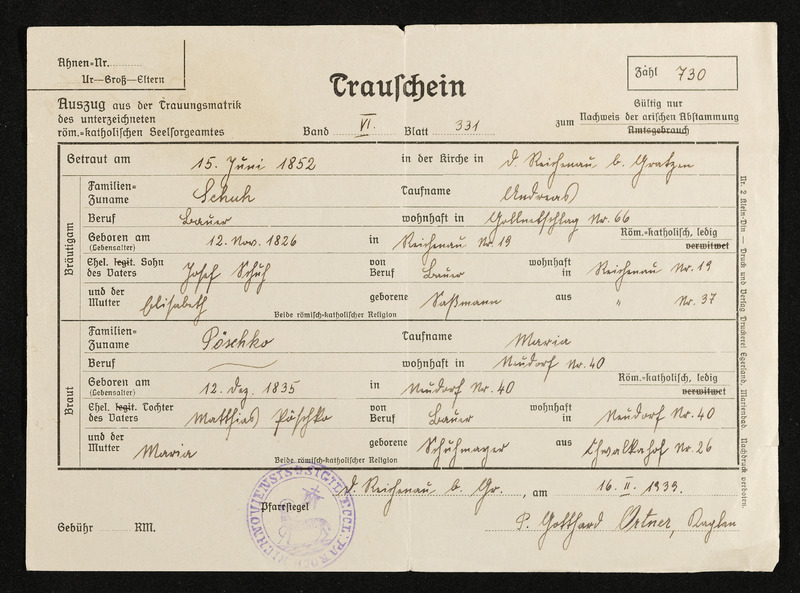 Ahnen=Nr.
Ur—Groß—Eltern
Trauschein
Zahl 730
Auszug aus der Trauungsmatrik
des unterzeichneten
röm.=katholischen Seelsorgeamtes
Band VI. Blatt 331
Gültig nur
zum Nachweis der arischen Abstammung
Amtsgebrauch
Getraut am 15. Juni 1852 in der Kirche in d. Reichenau b. Gratzen
Bräutigam
Familien=
Zuname Schuh Taufname Andreas
Beruf Bauer wohnhaft in Gollnetschlag Nr. 66
Geboren am 12. Nov. 1826 in Reichenau Nr. 19 Röm.=katholisch, ledig
(Lebensalter) verwitwet
Ehel. legit. Sohn
des Vaters Josef Schuh von Beruf Bauer wohnhaft in Reichenau Nr. 19
und der
Mutter Elisabeth geborene Saßmann aus " Nr. 37
Beide römisch=katholischer Religion
Braut
Familien=
Zuname Pöschko Taufname Maria
Beruf wohnhaft in Neudorf Nr. 40
Geboren am 12. Dez. 1835 in Neudorf Nr. 40 Röm.=katholisch, ledig
(Lebensalter) verwitwet
Ehel. legit. Tochter
des Vaters Matthias Pöschko von Beruf Bauer wohnhaft in Neudorf Nr. 40
und der
Mutter Maria geborene Schuhmayer aus Chwalkahof Nr. 26
Beide römisch=katholischer Religion
d. Reichenau b. Gr., am 16. II. 1939.
Pfarrsiegel
P. Gotthard Ortner, Kaplan
Gebühr RM.
Nr. 2 Klein=Din — Druck und Verlag Druckerei Egerland, Marienbad. Nachdruck verboten.